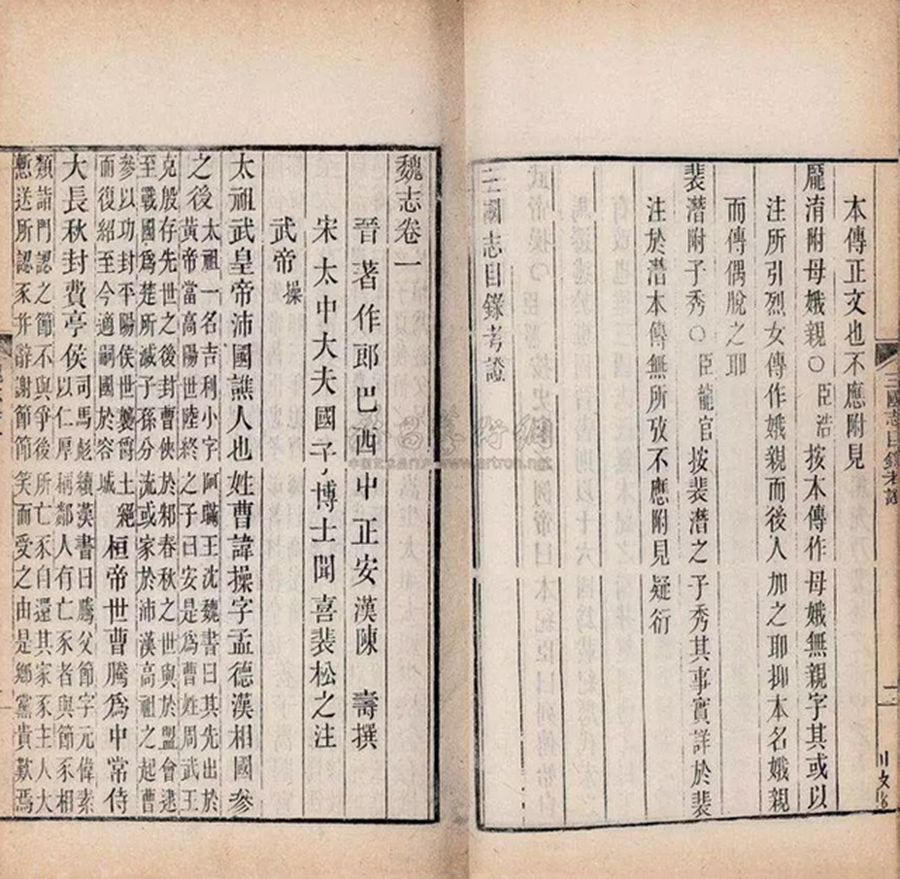 本傳正文也不應附見
龐淯附母娥親○臣浩按本傳作母娥無親字其或以
注所引烈女傳作娥親而後人加之耶抑本名娥親
而傳偶脫之耶
裴潛附子秀○臣龍官按裴潛之子秀其事實詳於裴
注於潛本傳無所攷不應附見疑衍
三國志目錄考證
三國志目錄考證
二
魏志卷一
晉著作郎巴西中正安漢陳壽撰
宋太中大夫國子博士聞喜裴松之注
武帝操
太祖武皇帝沛國譙人也姓曹諱操字孟德漢相國參
之後太祖一名吉利小字阿瞞王沈魏書曰其先出於
黃帝當高陽世陸終之子曰安是為曹姓周武王
克殷存先世之後封曹俠於邾春秋之世與於盟會逮
至戰國為楚所滅子孫分流或家於沛漢高祖之起曹
參以功封平陽侯世襲爵土絕
而復紹至今適嗣國於容城
桓帝世曹騰為中常侍
大長秋封費亭侯司馬彪續漢書曰騰父節字元偉素
以仁厚稱鄰人有亡豕者與節豕相
類詣門認之節不與爭後所亡豕自還其家豕主人大
慙送所認豕并辭謝節節笑而受之由是鄉黨貴歎焉